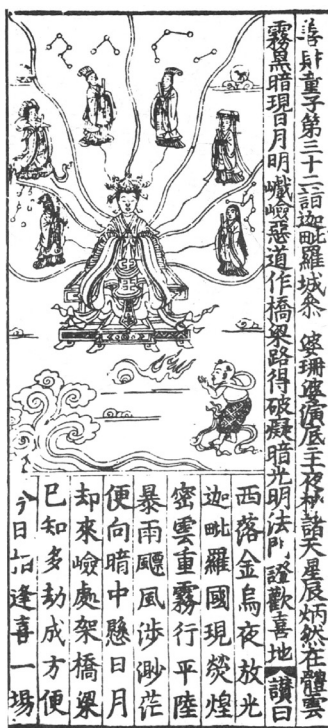 善財童子第三十二詣迦毗羅城叅 婆珊婆演底主夜神諸天星辰炳然在體雲
霧黑暗現日月明巇嶮惡道作橋梁路得破癡暗光明法門證歡喜地 讚曰
西落金烏夜放光
迦毗羅國現熒煌
密雲重霧行平陸
暴雨飄風涉渺茫
便向暗中懸日月
却來嶮處架橋梁
已知多劫成方便
今日 逢喜一場